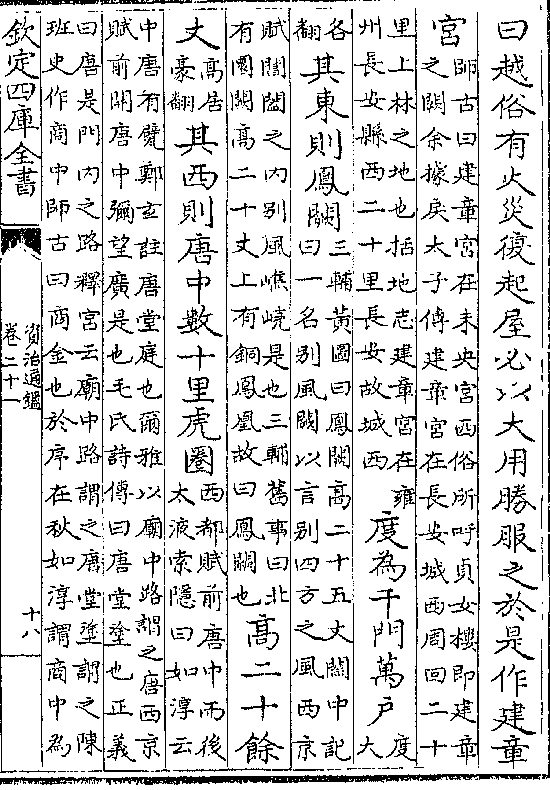 曰越俗有火災復起屋必以大用勝服之於是作建章
宮師古曰建章宮在未央宮西俗所呼貞女樓即建章之闕余據戾太子傳建章宮在長安城西周回二十
里上林之地也括地志建章宮在雍州長安縣西二十里長安故城西度為千門萬戶度大
各翻其東則鳳闕三輔黃圖曰鳳闕高二十五丈關中記曰一名别風闕以言别四方之風西京
賦閶闔之内别風嶕嶢是也三輔舊事曰北有圜闕高二十丈上有銅鳳凰故曰鳳闕也高二十餘
丈高居豪翻其西則唐中數十里虎圈西都賦前唐中而後太液索隱曰如淳云
中唐有甓鄭玄註唐堂庭也爾雅以廟中路謂之唐西京賦前開唐中彌望廣是也毛氏詩傳曰唐堂塗也正義
曰唐是門内之路釋宮云廟中路謂之唐堂塗謂之陳班史作商中師古曰商金也於序在秋如淳謂商中為
欽定四庫全書
資治通鑑
卷二十一
十八